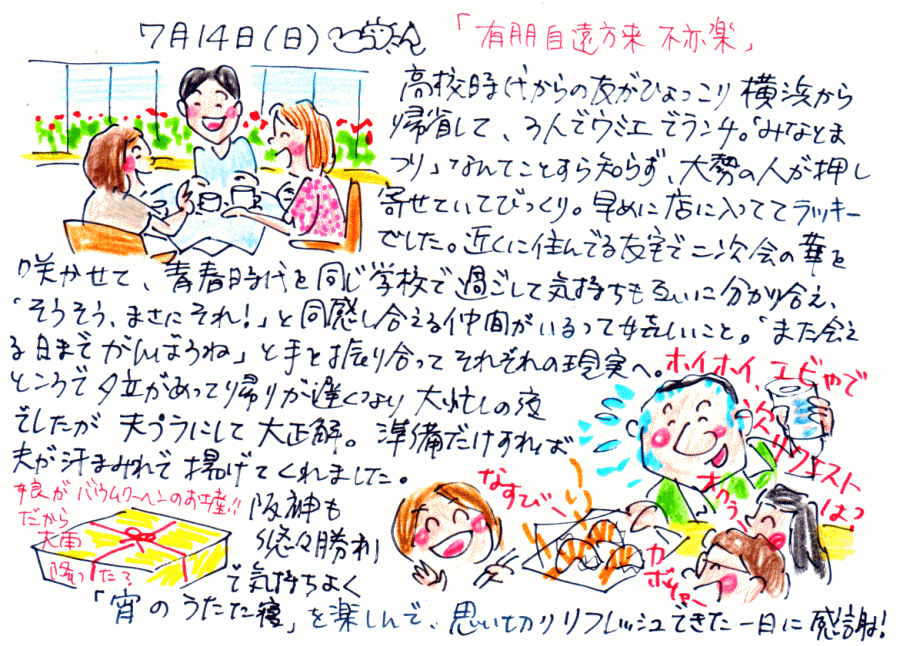 7月14日(日)
「有朋自遠方来 不亦楽」
高校時代からの友がひょっこり横浜から
帰省して、3人でウミエでランチ。「みなとま
つり」なんてことすら知らず、大勢の人が押し
寄せていてびっくり。早めに店に入っててラッキー
でした。近くに住んでる友宅で二次会の華を
咲かせて、青春時代を同じ学校で過ごして気持ちも互いに分かり合え、
「そうそう、まさにそれ!」と同感し合える仲間がいるって嬉しいこと。「また会え
る日までがんばろうね」と手を振り合ってそれぞれの現実へ。
ところで夕立があって帰りが遅くなり大忙しの夜
でしたが 天プラにして大正解。準備だけすれば
夫が汗まみれで揚げてくれました。
ホイホイ、エビやで
次
リクエスト
は?
なすび〜
カボチャー
娘がバウムクーヘンのお土産!!
だから
大雨
降った?
阪神も
悠々勝利
で気持ちよく
「宵のうたた寝」を楽しんで、思い切りリフレッシュできた一日に感謝!